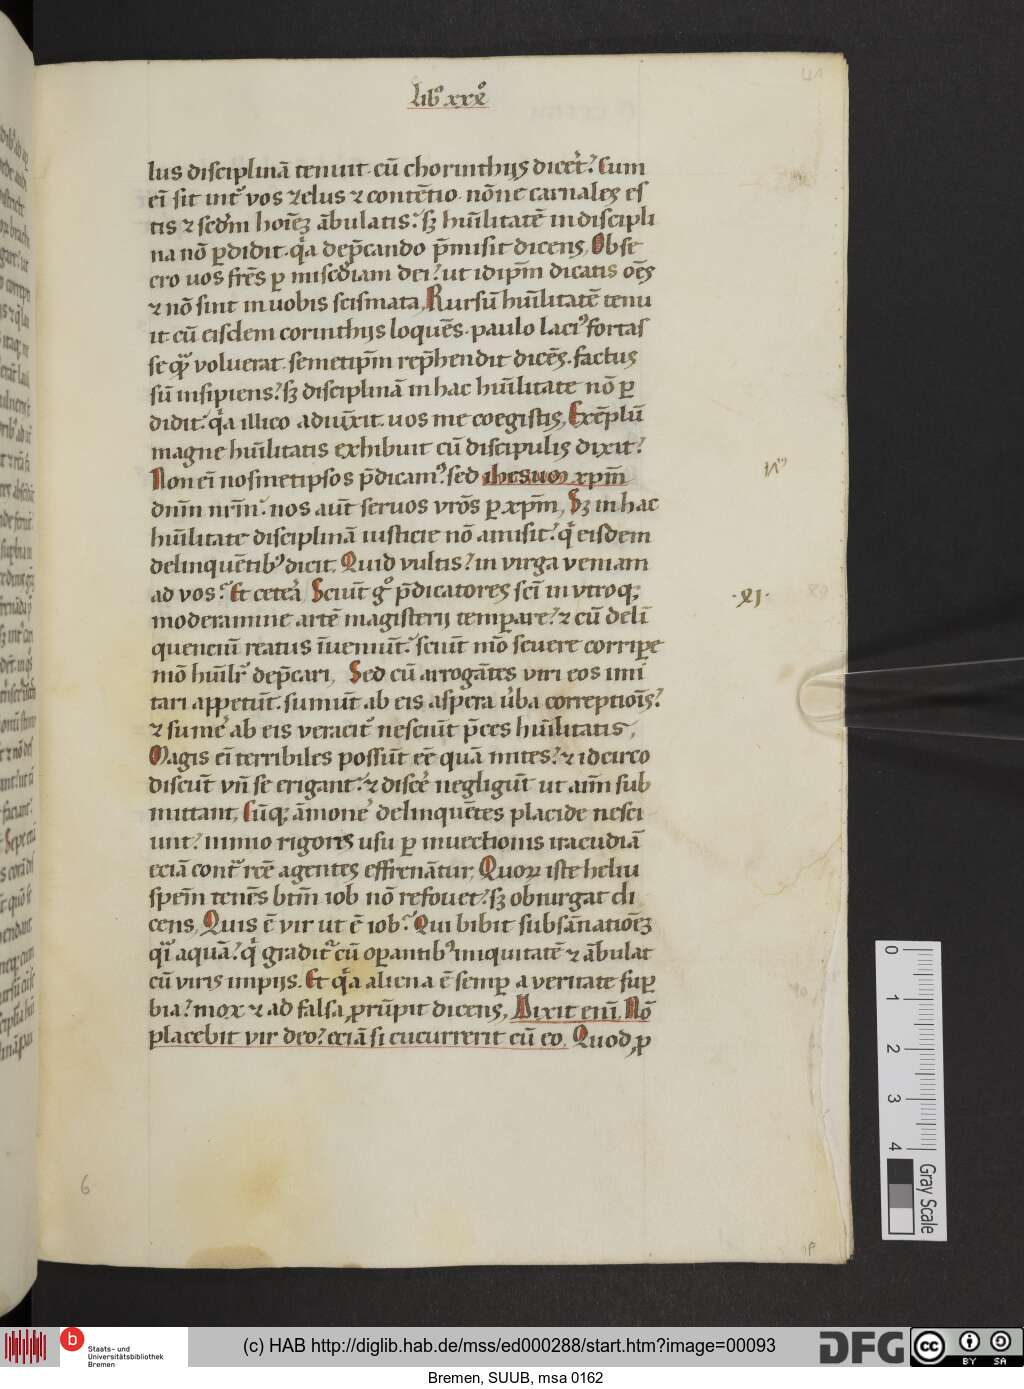 libº xxxº
lus disciplinā tenuit. cū chorinthijs dicēt? Cum
eī sit int̄ vos zelus ⁊ contētio. nōne carnales es
tis ⁊ sedm̄ hoīez ābulatis? sꝫ hūilitatē in discipli
na nō ꝑdidit. qͣa dep̄cando p̄misit dicens, Obse
cro uos frēs ꝑ mis̄cdiam dei? ut idip̄m dicatis oēs
⁊ nō sint in uobis scismata, Rursū hūilitatē tenu
it cū eisdem corinthijs loquēs. paulo laciꝰ fortas
se qͣꝫ voluerat. semetip̄m rep̄hendit dicēs. factus
sū insipiens? sꝫ disciplinā in hac hūilitate nō ꝑ
didit. qͣa illico adiūxit. uos me coegistis, Exēplū
magne hūilitatis exhibuit cū discipulis dixit?
Non eī nosmetipsos p̄dicamꝰ. sed ihesuꝫ xp̄m
dnīm nr̄m. nos aūt seruos vrōs ꝑ xp̄m, Sꝫ in hac
hūilitate disciplinā iusticie nō amisit? qͥ eisdem
delinquētibꝰ dicit. Quid vultis? in virga veniam
ad vos? Et cetēa, Sciūt gͦ p̄dicatores scī in vtroqꝫ
moderamine artē magisterij temꝑare? ⁊ cū delī
quenciū reatus īueniūt. sciūt mō seuere corriꝑe
mō hūilr̄ dep̄cari, Sed cū arrogātes viri eos imi
tari appetūt. sumūt ab eis aspera v̄ba correptioīs?
⁊ sume᷑ ab eis veracit̄ nesciūt p̄ces hūilitatis,
Magis eī terribiles possūt eē quā mites? ⁊ idcirco
discūt vn̄ se erigant? ⁊ disce᷑ negligūt ut aīm sub
mittant, Cūqꝫ āmone᷑ delinquētes placide nesci
unt? nimio rigoris usu ꝑ inuectionis iracūdiā
eciā cont̄ rcē agentes effrenātur, Quoꝝ iste heliu
spem̄ tenēs btm̄ iob nō refouet? sꝫ obiurgat di
cens, Quis ē vir ut ē iob? Qui bibit subsānatiōez
qͣi aquā? qͥ gradit᷑ cū oꝑantibꝰ iniquitatē ⁊ ābulat
cū viris impijs. Et qͣa aliena ē semꝑ a veritate suꝑ
bia? mox ⁊ ad falsa prūpit dicens, Dixit enī, Nō
placebit vir deo? eciā si cucurrerit cū eo, Quod ꝓ
·XI·
6
0
1
2
3
4
Gray Scale
b
Staats- und
Universitätsbibliothek
Bremen
(c) HAB http://diglib.hab.de/mss/ed000288/start.htm?image=00093
DFG
cc
BY SA
Bremen, SUUB, msa 0162